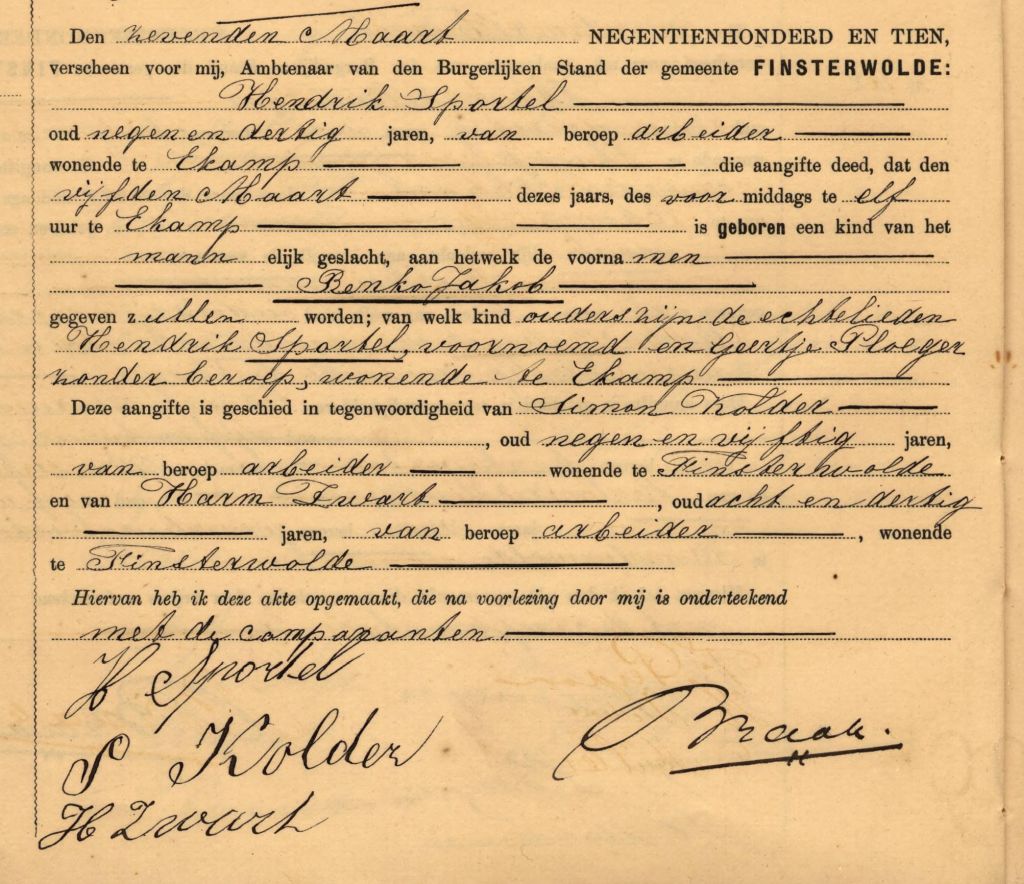 Den zevenden Maart NEGENTIENHONDERD EN TIEN,
verscheen voor mij, Ambtenaar van den Burgerlijken Stand der gemeente FINSTERWOLDE:
Hendrik Sportel
oud negen en dertig jaren, van beroep arbeider
wonende te Ekamp die aangifte deed, dat den
vijfden Maart dezes jaars, des voor middags te elf
uur te Ekamp is geboren een kind van het
mann elijk geslacht, aan hetwelk de voorna men
Benko Jakob
gegeven z ullen worden; van welk kind ouders zijn de echtelieden
Hendrik Sportel, voornoemd en Geertje Ploeger
zonder beroep, wonende te Ekamp
Deze aangifte is geschied in tegenwoordigheid van Simon Kolder
, oud negen en vijftig jaren,
van beroep arbeider wonende te Finsterwolde
en van Harm Zwart , oud acht en dertig
jaren, van beroep arbeider , wonende
te Finsterwolde
Hiervan heb ik deze akte opgemaakt, die na voorlezing door mij is onderteekend
met de comparanten.
H Sportel
S Kolder
H Zwart
Braak.